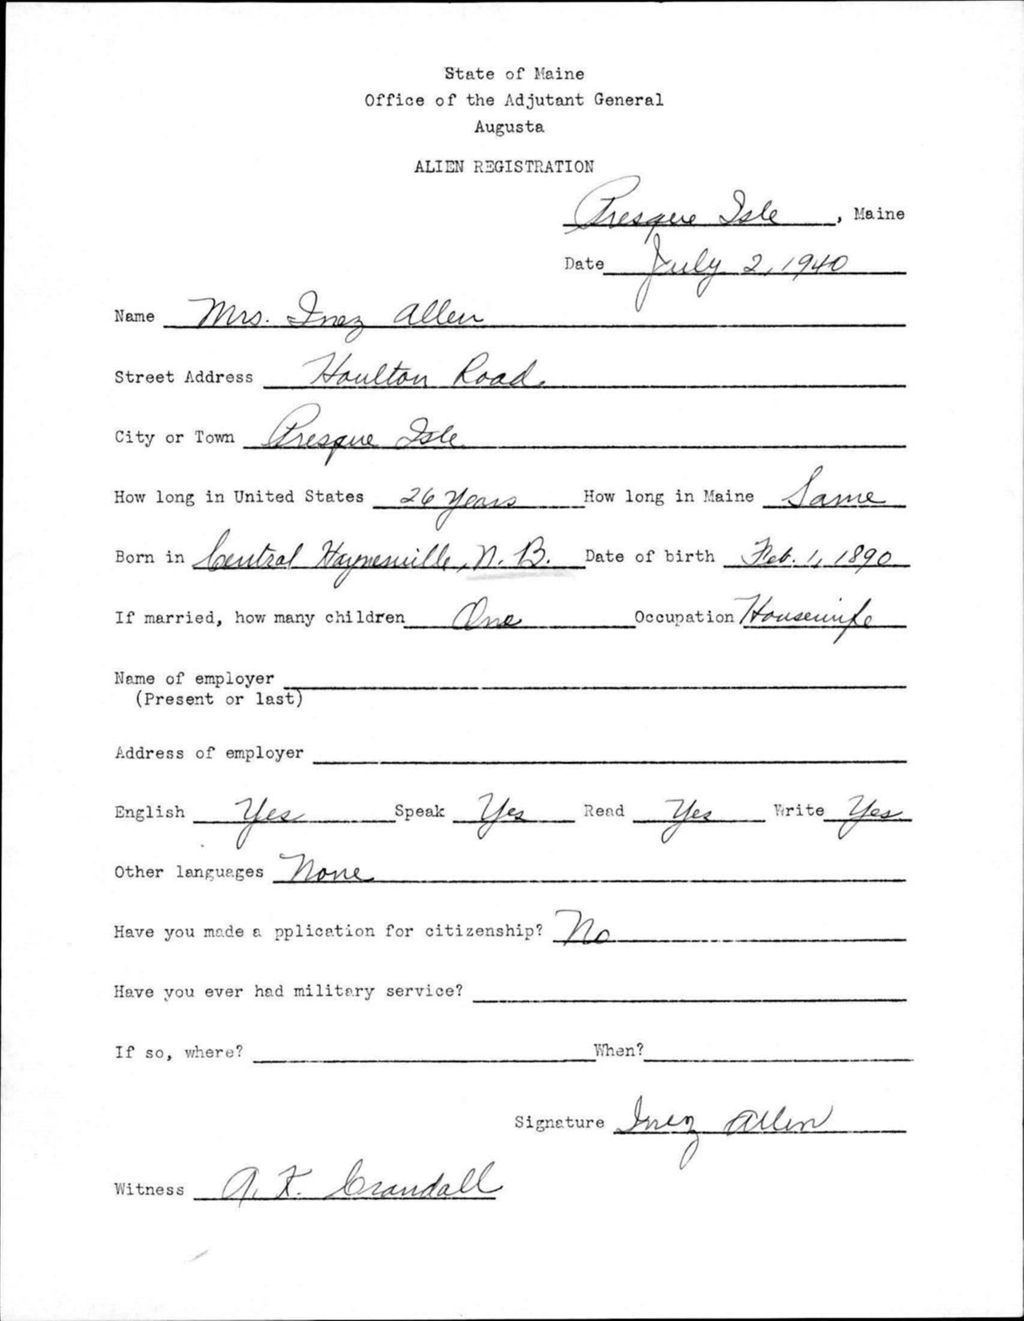 State of Maine
Office of the Adjutant General
Augusta
ALIEN REGISTRATION
Presque Isle, Maine
Date July 2, 1940
Name Mrs. Inez Allen
Street Address Houlton Road.
City or Town Presque Isle
How long in United States 26 Years How long in Maine Same
Born in Central Haynesville, N. B. Date of birth Feb. 1, 1890
If married, how many children One Occupation Housewife
Name of employer
(Present or last)
Address of employer
English Yes Speak Yes Read Yes Write Yes
Other languages None
Have you made a pplication for citizenship? No
Have you ever had military service?
If so, where? When?
Signature Inez Allen
Witness A. F. Crandall